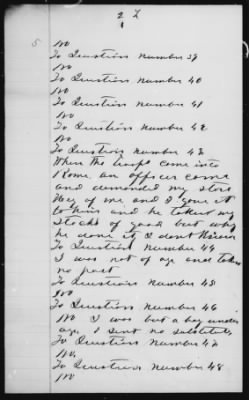 2 L
5
No
To Question Number 39
No
To Question Number 40
No
To Question Number 41
No
To Question Number 42
No
To Question Number 43
When the troops come into
Rome, an officer come
and demanded my store
Key of me and I gave it
to him and he taken my
Stocks of good but why
he done it I dont Know
To Question Number 44
I was not of age and taken
no part
To Question Number 45
No
To Question Number 46
No I was but a boy under
age I sent no substitute
To Question Number 47
No,
To Question Number 48
No